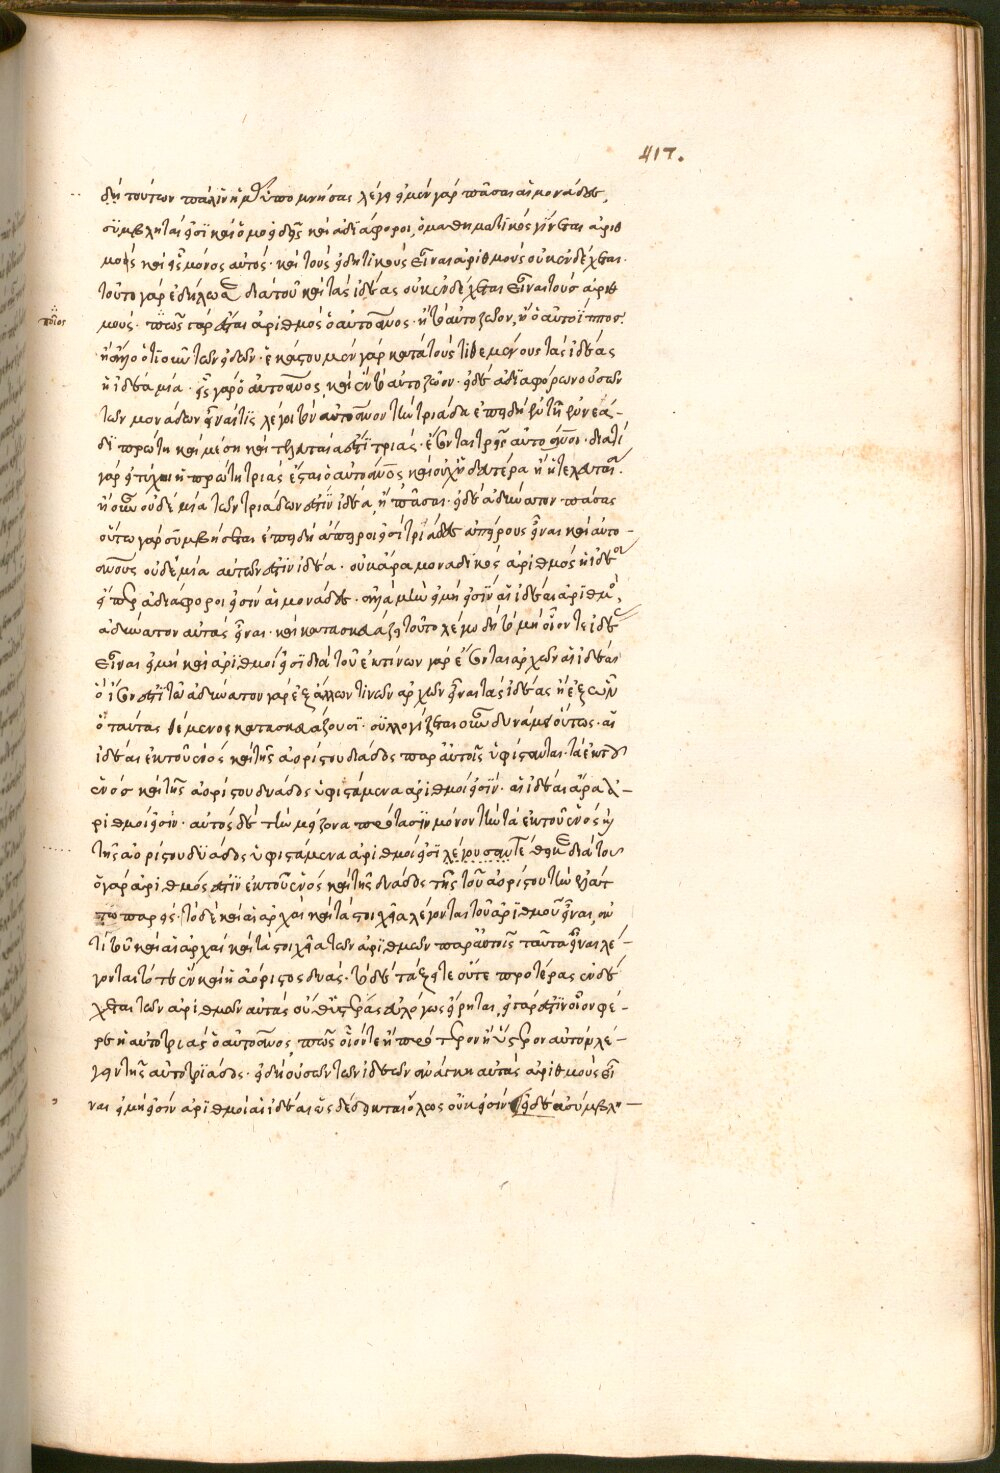 417.
δὴ τούτων πάλιν ἡμᾶς ὑπομνήσας λέγει εἰ μὲν γὰρ πᾶσαι αἱ μονάδες,
σύμβλητοί εἰσι καὶ ὁμοειδεῖς καὶ ἀδιάφοροι, ὁ μαθηματικὸς γίνεται ἀριθ
μὸς καὶ εἷς μόνος αὐτός. καὶ τοὺς εἰδητικοὺς εἶναι ἀριθμοὺς οὐκ ἐνδέχεται.
τοῦτο γὰρ ἐδήλωσε διὰ τοῦ καὶ τὰς ἰδέας οὐκ ἐνδέχεται εἶναι τοὺς ἀριθ
ποῖος
μούς. πῶς γὰρ ἔσται ἀριθμὸς ὁ αὐτοάνος. ἢ τὸ αὐτοζῶον, ἢ ὁ αὐτοίππος.
ἢ ἄλλο ὁτιοῦν τῶν εἰδῶν. ἑκάστου μὲν γὰρ κατὰ τοὺς τιθεμένους τὰς ἰδέας
ἡ ἰδέα μία. εἷς γὰρ ὁ αὐτοάνος, καὶ ἓν τὸ αὐτοζῶον. εἰ δὲ ἀδιαφόρων οὐσῶν
τῶν μονάδων εἶναί τις λέγοι τὸν αὐτοάνον τὴν τριάδα ἐπειδὴ ἐν τῇ ἐννεά-
δι πρώτη καὶ μέση καὶ τελευταία ἐστὶ τριάς. ἔσονται τρεῖς αὐτοάνοι. διατί
γὰρ εἰ τύχοι ἡ πρώτη τριὰς ἔσται ὁ αὐτοάνος καὶ οὐχὶ ἡ δευτέρα ἢ ἡ τελευταία.
ἢ οὖν οὐδεμία τῶν τριάδων ἐστὶν ἰδέα, ἢ πᾶσαι. εἰ δὲ ἀδύνατον πάσας
οὕτω γὰρ συμβήσεται ἐπειδὴ ἄπειροι εἰσὶ τριάδες ἀπείρους εἶναι καὶ αὐτο-
άνους οὐδεμία αὐτῶν ἐστὶν ἰδέα. οὐκ ἄρα μοναδικὸς ἀριθμὸς ἡ ἰδέα
εἴπερ ἀδιάφοροι εἰσὶν αἱ μονάδες. ἀλλὰ μὴν εἰ μή εἰσιν αἱ ἰδέαι ἀριθμοί,
ἀδύνατον αὐτὰς εἶναι. καὶ κατασκευάζει τοῦτο λέγω δὴ τὸ μὴ οἷόν τε ἰδέας
εἶναι εἰ μὴ καὶ ἀριθμοί εἰσι διὰ τοῦ ἐκ τίνων γὰρ ἔσονται ἀρχῶν αἱ ἰδέαι
ὅ ἴσον ἐστὶ τῷ ἀδύνατον γὰρ ἐξ ἄλλων τινῶν ἀρχῶν εἶναι τὰς ἰδέας ἢ ἐξ ὧν
οἱ ταύτας θέμενοι κατασκευάζουσι. συλλογίζεται οὖν δυνάμει οὕτως. αἱ
ἰδέαι ἐκ τοῦ ἑνὸς καὶ τῆς ἀορίστου δυάδος παρ' αὐτοῖς ὑφίστανται. τὰ ἐκ τοῦ
ἑνὸς καὶ τῆς ἀορίστου δυάδος ὑφιστάμενα ἀριθμοί εἰσιν. αἱ ἰδέαι ἄρα ἀ-
ριθμοί εἰσιν. αὐτὸς δὲ τὴν μείζονα πρότασιν μόνον τὴν τὰ ἐκ τοῦ ἑνὸς καὶ
τῆς ἀορίστου δυάδος ὑφιστάμενα ἀριθμοί εἰσι λέγουσαν τέθεικε διὰ τοῦ
ὁ γὰρ ἀριθμός ἐστιν ἐκ τοῦ ἑνὸς καὶ τῆς δυάδος τῆς τοῦ ἀορίστου τὴν ἐλάτ
τω παρείς. τὸ δὲ καὶ αἱ ἀρχαὶ καὶ τὰ στοιχεῖα λέγονται τοῦ ἀριθμοῦ εἶναι, ἀν
τὶ τοῦ καὶ αἱ ἀρχαὶ καὶ τὰ στοιχεῖα τῶν ἀριθμῶν παρ' αὐτοῖς ταῦτα εἶναι λέ-
γονται τό τε ἓν καὶ ἡ ἀόριστος δυάς. τὸ δὲ τάξαι τε οὔτε προτέρας ἐνδέ-
χεται τῶν ἀριθμῶν αὐτὰς οὔθ' ὑστέρας εὐλόγως εἴρηται, εἰ γάρ ἐστιν οἷον φέ-
ρε ἡ αὐτοτριὰς ὁ αὐτοάνος πῶς οἷόν τε ἢ πρότερον ἢ ὕστερον αὐτὸν λέ-
γειν τῆς αὐτοτριάδος. εἰ δὴ οὐσῶν τῶν ἰδεῶν ἀνάγκη αὐτὰς ἀριθμοὺς εἶ
ναι εἰ μή εἰσιν ἀριθμοὶ αἱ ἰδέαι ὡς δέδεικται ὅλως οὐκ εἰσίν. εἰ δὲ ἀσύμβλη-